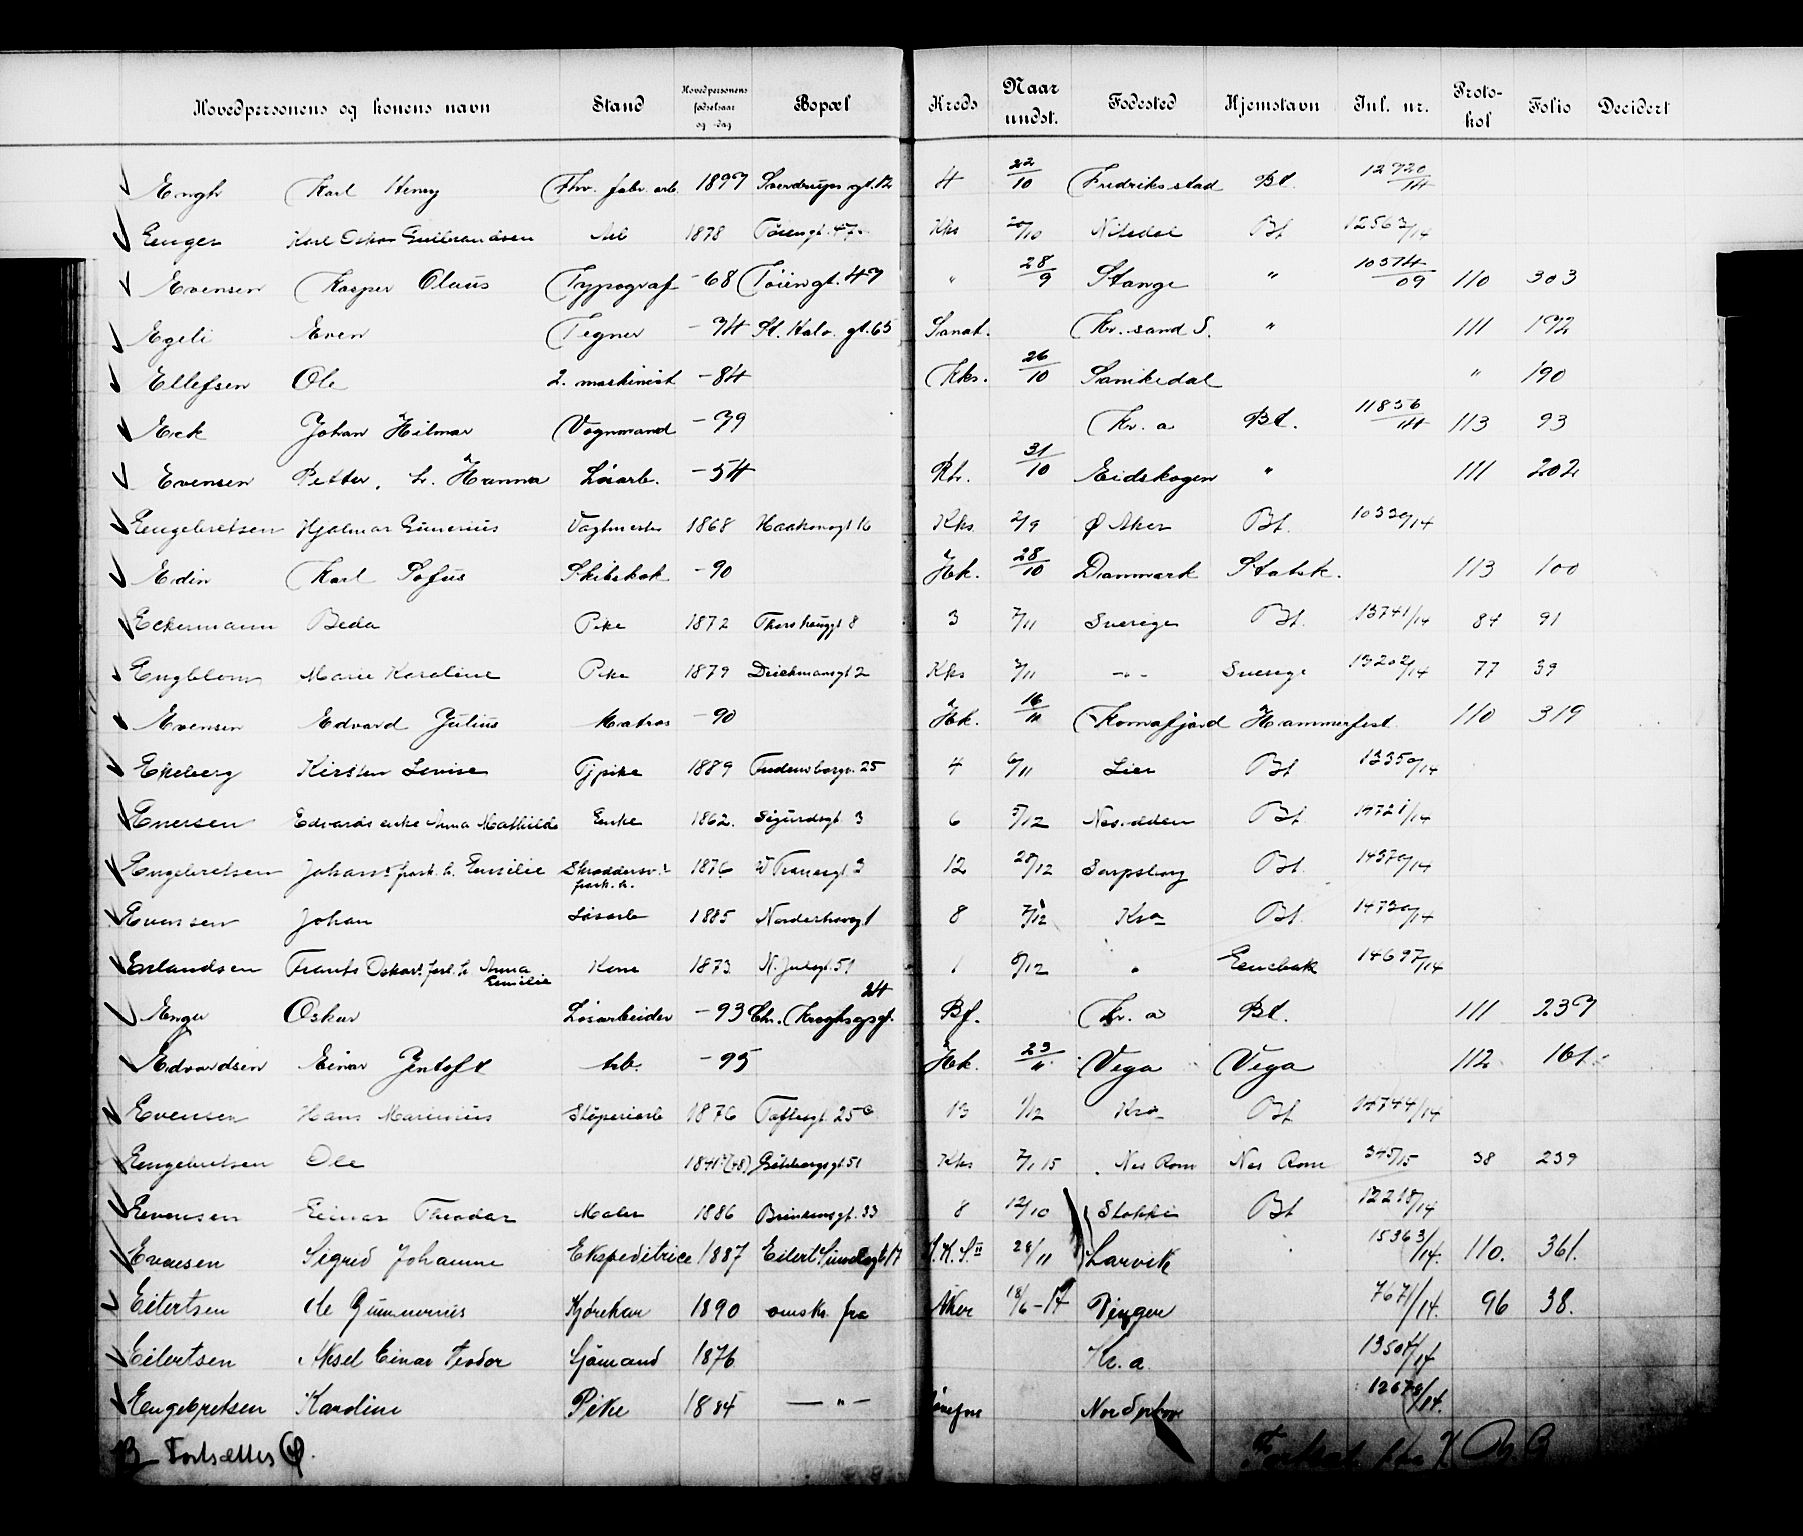 Hovedpersonens og konens navn Stand Hovedpersonens fødselsaar og -dag Bopæl Kreds Naar undst. Fødested Hjemstavn Inl. nr. Protokol Folio Decidert
Engh Karl Henry Thv. fabr. arb. 1897 Sverdrups gt. 12 4 22/10 Fredriksstad Bt. 12920/14
Enger Karl Oskar Gulbrandsen Arb 1878 Tøiengt. 47 Kks 20/10 Nitedal Bt 12563/14
Evensen Kasper Olaus Typograf -68 Tøiengt. 47 " 28/9 Stange " 10574/09 110 303
Egeli Even Tegner -74 St. Halv. gt. 65 Sanat. Kr. sand S. " 111 192
Ellefsen Ole 2. maskinist -84 Kks. 26/10 Sanikedal " 190
Eck Johan Hilmar Vognmand -79 Kr. a Bt. 11856/14 113 93
Evensen Petter, h. Hanna Løsarb. -54 Rh. 31/10 Eidskogen " 111 202
Engebretsen Hjalmar Gunerius Vagtmester 1868 Haakonsgt 16 Kks 2/9 Ø Aker Bt. 10330/14
Edin Karl Sofus Skibskok -90 Hk. 28/10 Danmark Statsk. 113 100
Eckermann Beda Pike 1872 Thorshauggt 8 3 7/11 Sverige Bt. 13741/14 84 91
Engblom Marie Karoline Pike 1879 Deichmansgt 2 Kks 3/11 -"- Sverige 13202/14 77 39
Evensen Edvard Julius Matros -90 Hk. 16/11 Komafjord Hammerfest 110 319
Ekeberg Kirsten Lovise Tjpike 1889 Fredensborgv. 25 4 6/11 Lier Bt 13350/14
Enersen Edvards enke Anna Mathilde Enke 1862. Sigurdsgt 3 6 5/12 Nesodden Bt. 14721/14
Engebretsen Johans frask. h. Emilie Skræddersv.s frask. h. 1876 W Tranesgt 3 12 28/12 Sarpsborg Bt. 14370/14
Evensen Johan Løsarb 1885 Norderhovgt 8 7/12 Kra Bt. 14730/14
Erlandsen Frants Oskars forl. h. Anna Emilie Kone 1873 N. Julsgt. 51 1 6/12 " Enebak 14697/14
Enger Oskar Løsarbeider -93 Chr. Kroghsgt. 24 Bf. Kr. a Bt. 111 239
Edvardsen Einar Jentoft Arb. -95 Hk. 23/11 Vega Vega 112 161
Evensen Hans Marinius Støperiarb 1876 Toftesgt. 25 c 13 1/12 Kra Bt 14744/14
Engebretsen Ole 1841 (48) Gøteborggt 51 Kks 7/1 15 Nes Rom Nes Rom 345/15 38 239
Evensen Einar Theodor Maler 1886 Brinkensgt. 33 8 12/10 Stokke Bt 12218/14
Evensen Sigrid Johanne Ekspeditrice 1887 Eilert Sundsgt 17 U.K.S. II 28/11 Larvik 15363/14. 110. 361.
Eilertsen Ole Gunnerius Kjørekar 1890 omsk. fra Aker 18/6-14 Vinger 7671/14. 96 38.
Eilertsen Aksel Einar Teodor Sjømand 1876 Kr. a. 13504/14
Engebretsen Karoline Pike 1884 -"- Hønefos 12678/14.
Fortsættes